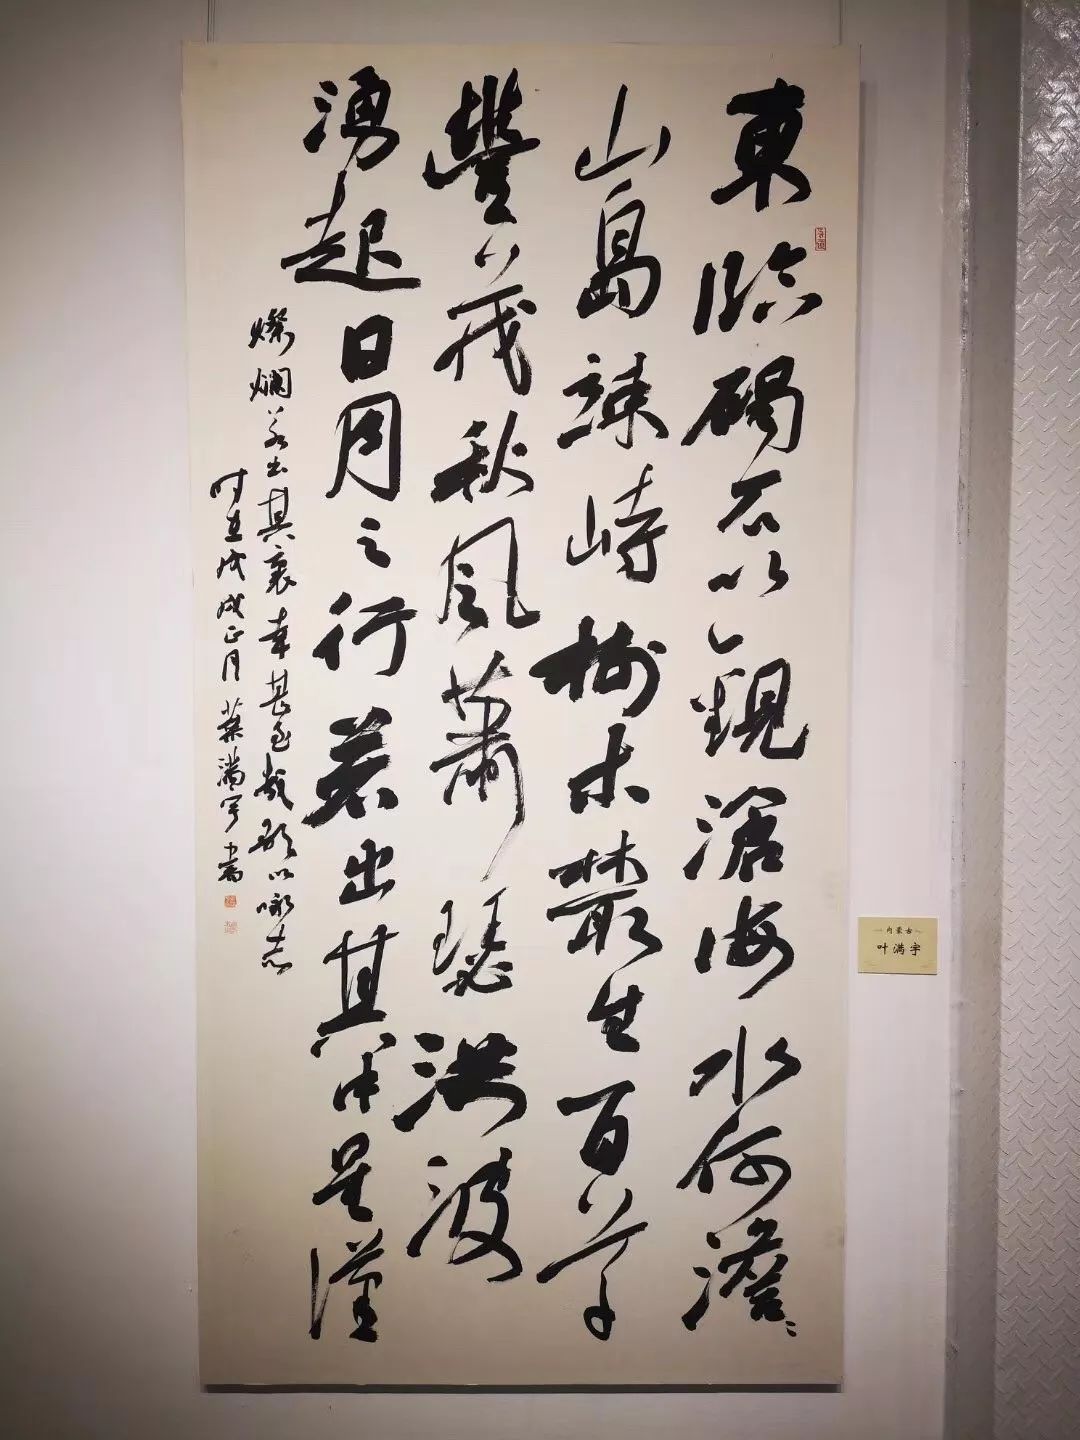 東臨碣石以觀滄海水何澹〻
山島竦峙樹木叢生百草
豐茂秋風蕭瑟洪波
湧起日月之行若出其中星漢
燦爛若出其裏幸甚至哉歌以咏志
时在戊戌正月葉滿宇書
内蒙古
叶满宇